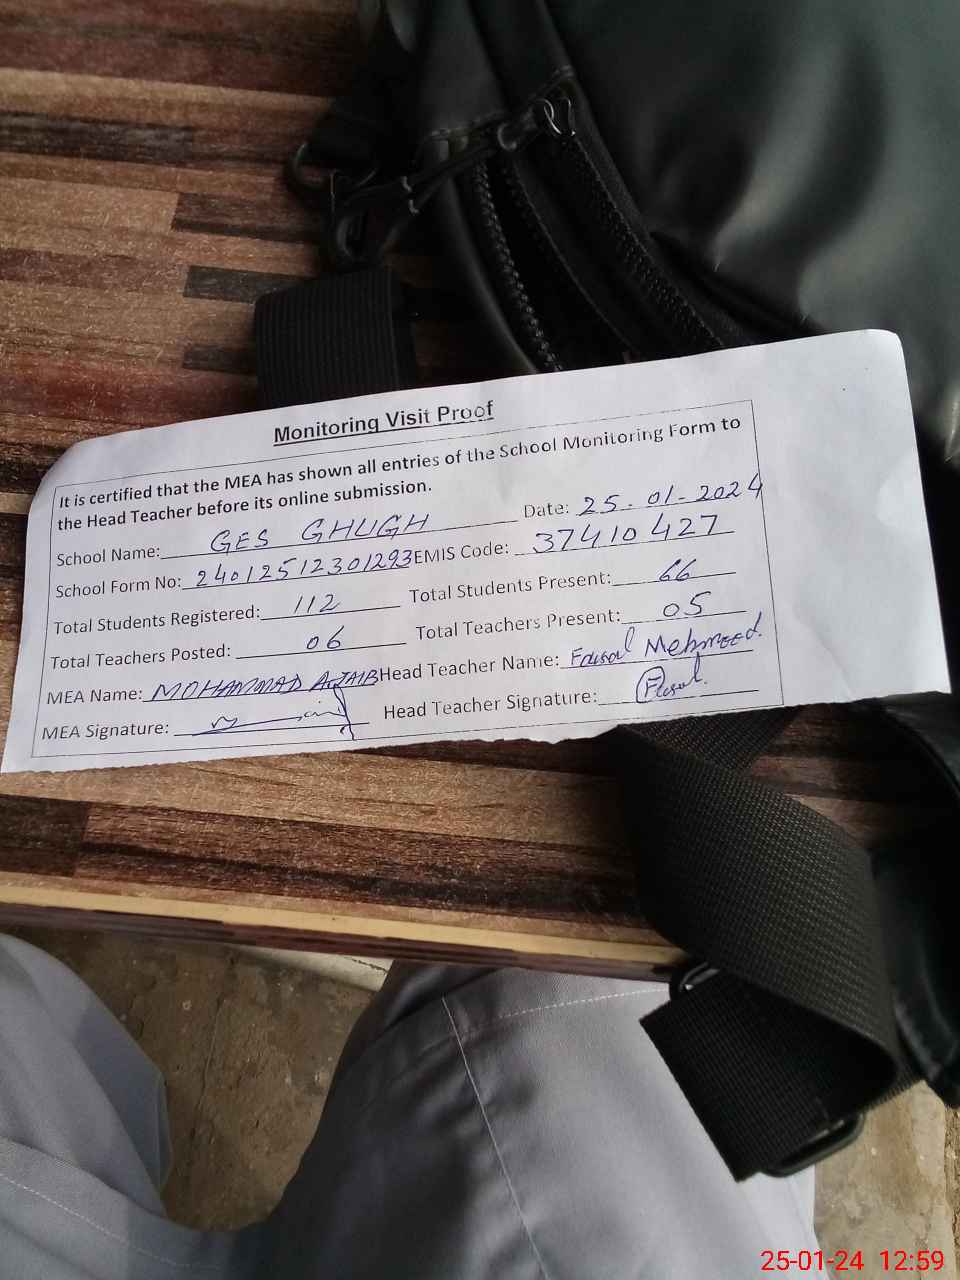 Monitoring Visit Proof
It is certified that the MEA has shown all entries of the School Monitoring Form to
the Head Teacher before its online submission.
School Name: GES GHUGH Date: 25-01-2024
School Form No: 24012512301293 EMIS Code: 37410427
Total Students Registered: 112 Total Students Present: 66
Total Teachers Posted: 06 Total Teachers Present: 05
MEA Name: MOHAMMAD AJAIB Head Teacher Name: Faisal Mehmood
MEA Signature: Head Teacher Signature: Faisal
25-01-24 12:59